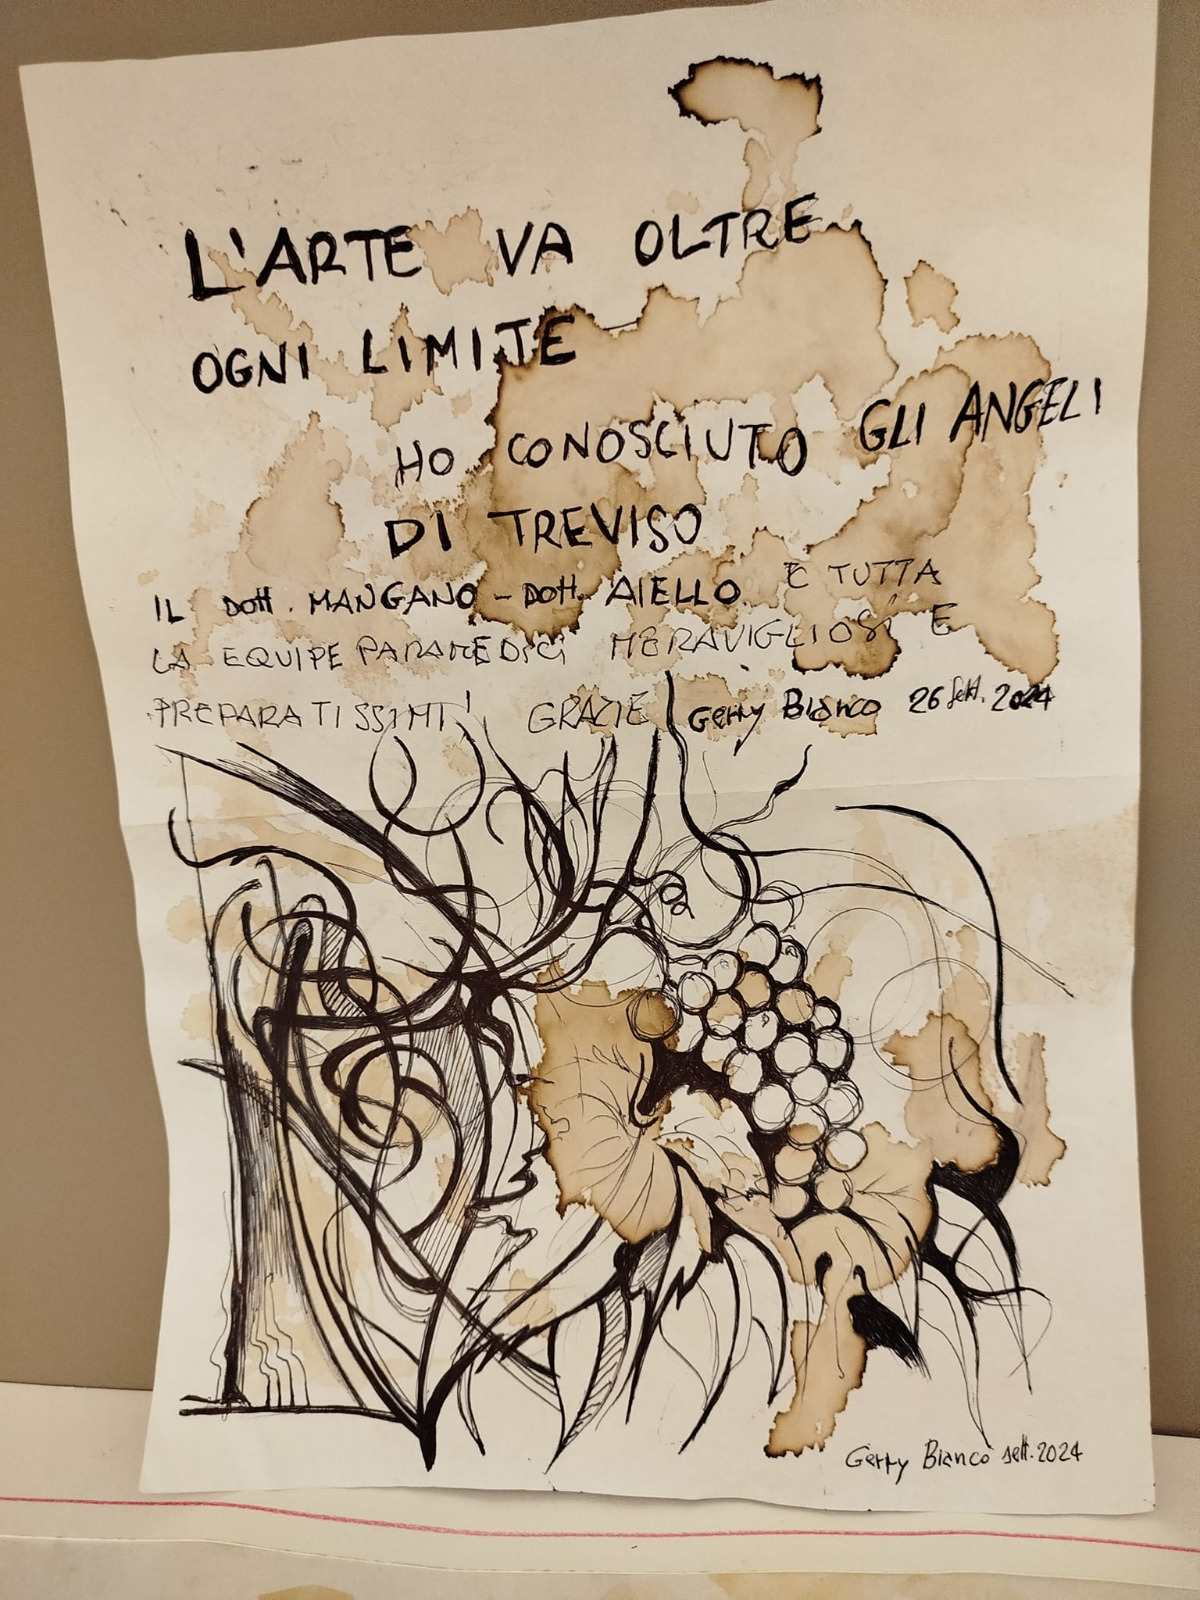 L'ARTE VA OLTRE
OGNI LIMITE
HO CONOSCIUTO GLI ANGELI
DI TREVISO
IL DOTT. MANGANO - DOTT. AIELLO E TUTTA
LA EQUIPE PARAMEDICI MERAVIGLIOSI E
PREPARATISSIMI! GRAZIE! Gerry Bianco 26 Sett. 2024
Gerry Bianco sett. 2024